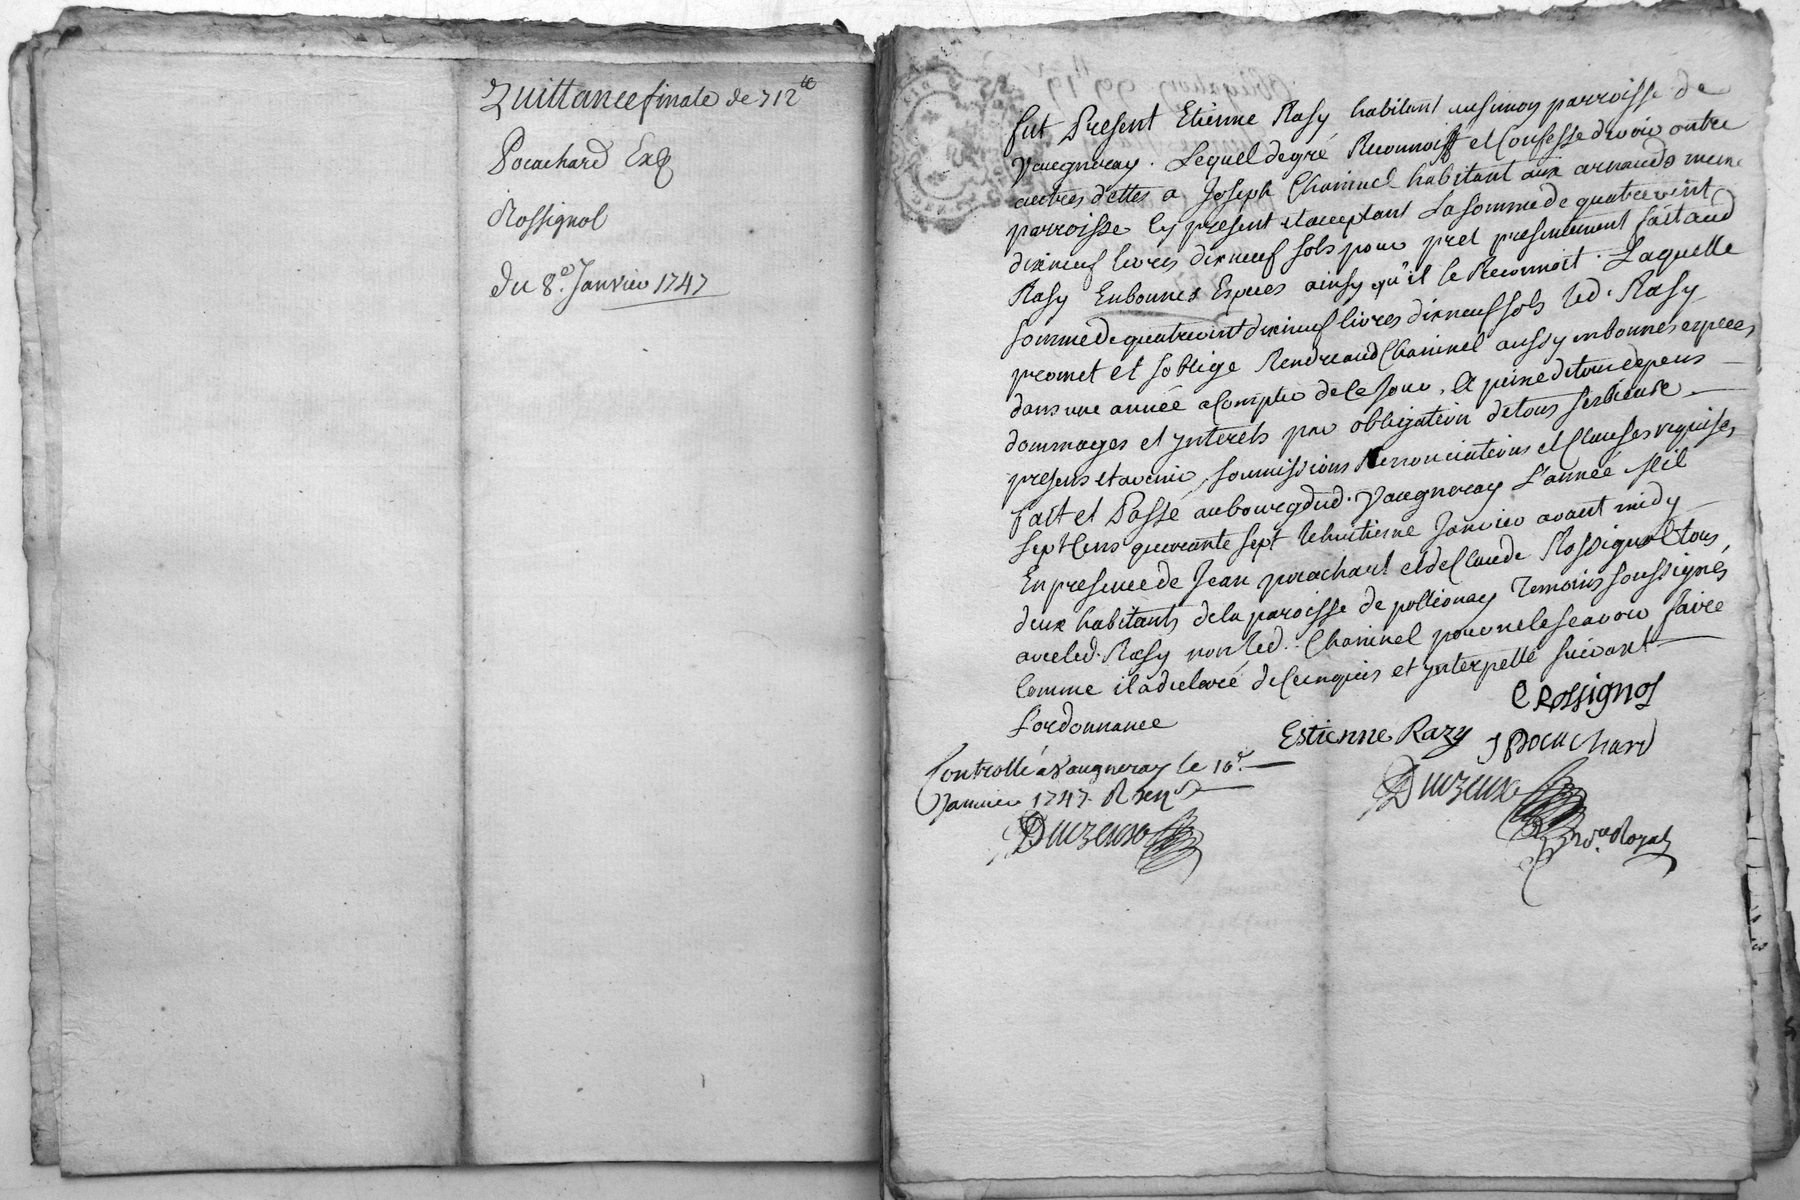 Quittance finale de 712 lt
Pocachard Exp
Rossignol
du 8e. Janvier 1747
fut Present Etienne Rasy habitant parroisse de
Vaugneray. Lequel degré Reconnoist et Confesse devoir outre
autres dettes a Joseph Chaninel habitant aux arnauds meme
parroisse Cy present et acceptant La somme de quatrevint
dixneuf livres dixneuf sols pour pret presentement fait aud
Rasy En bonnes Especes ainsy qu'il le Reconnoit. Laquelle
somme de quatrevint dixneuf livres dixneuf sols led. Rasy
promet et soblige Rendre aud Chaninel aussy en bonnes especes
dans une année a Compter de Ce Jour, A peine de tous depens
dommages et ynterets par obligation de tous ses biens
presens et avenir, soumissions Renonciations et Clauses requises
fait et Passé au bourg dud. Vaugneray L'année Mil
sept Cens quarante sept le huitieme Janvier avant midy
En presence de Jean pocachard et de Claude Rossignol tous
deux habitants de la paroisse de pollionay Temoins soussignés
avec led. Rasy non led. Chaninel pour ne le scavoir faire
Comme il a declaré de Ce enquis et ynterpellé suivant
L'ordonnance
C Rossignol
Estienne Razy J Pocachard
Controllé a Vaugneray le 10e.
Janvier 1747. R
Duczeux
Duczeux
Nre. Royal